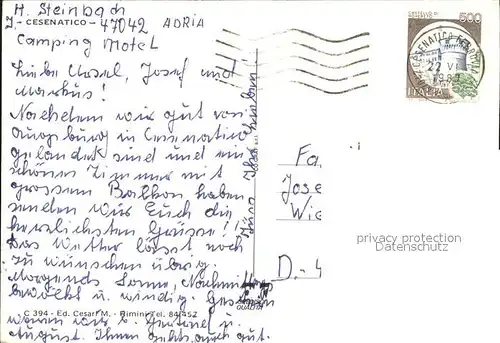 H. Steinbach
I - CESENATICO - 47042 ADRIA
Camping Motel
Liebe Josef und
Markus!
Nachdem wir gut von
Augsburg in Cesenatico
gelandet sind und ein
schönes Zimmer mit
grossem Balkon haben
senden wir Euch die
herzlichsten Grüsse!!
Das Wetter lässt noch
zu wünschen übrig.
Morgends Sonne, Nachmittag
bewölkt u. windig. Gestern
waren wir b. u.
August. Ihnen gehts auch gut.
C 394 - Ed. Cesari M. - Rimini Tel. 84452
500
CESENATICO
22 VI
ITALIA
Fa
Jose
Wie
D.-4
privacy protection
Datenschutz